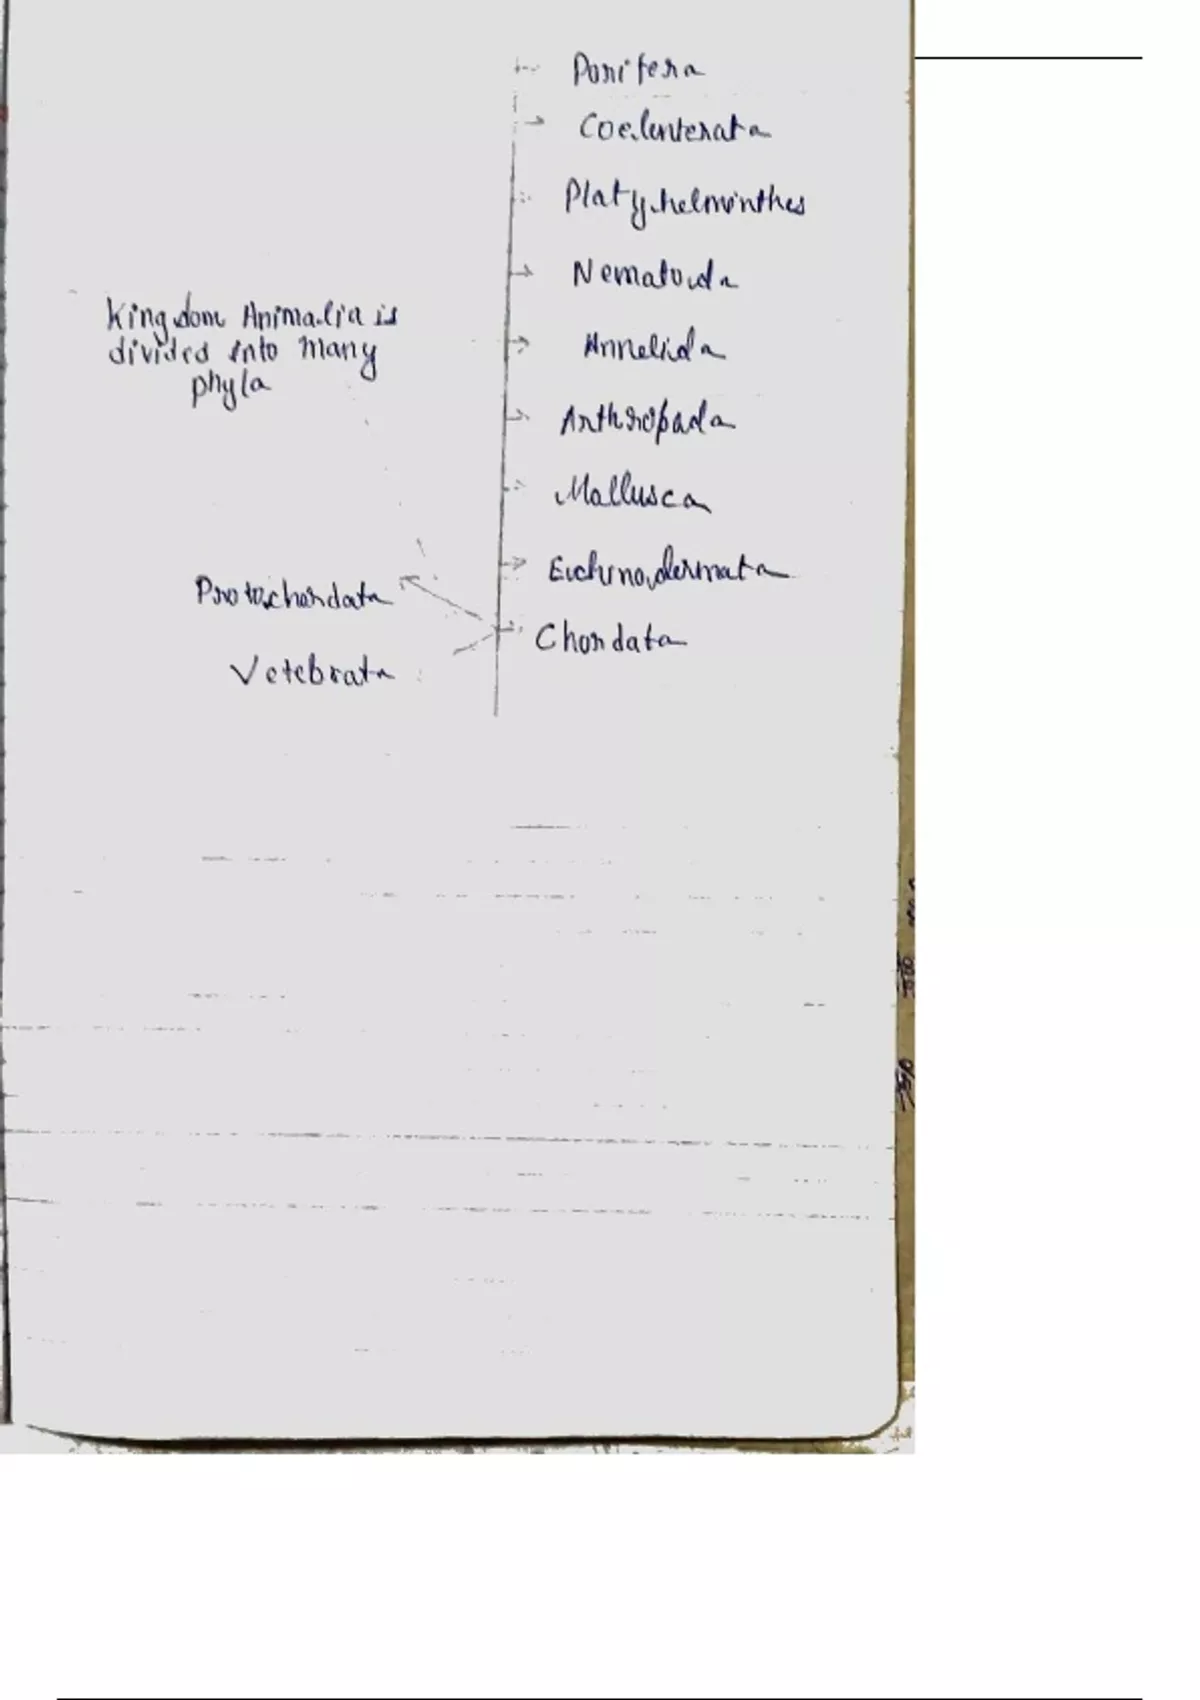 Porifera
Coelenterata
Platyhelminthes
Nematoda
Kingdom Animalia is
divided into many
phyla
Annelida
Arthropada
Mallusca
Echinodermata
Protochordata
Chordata
Vetebrata